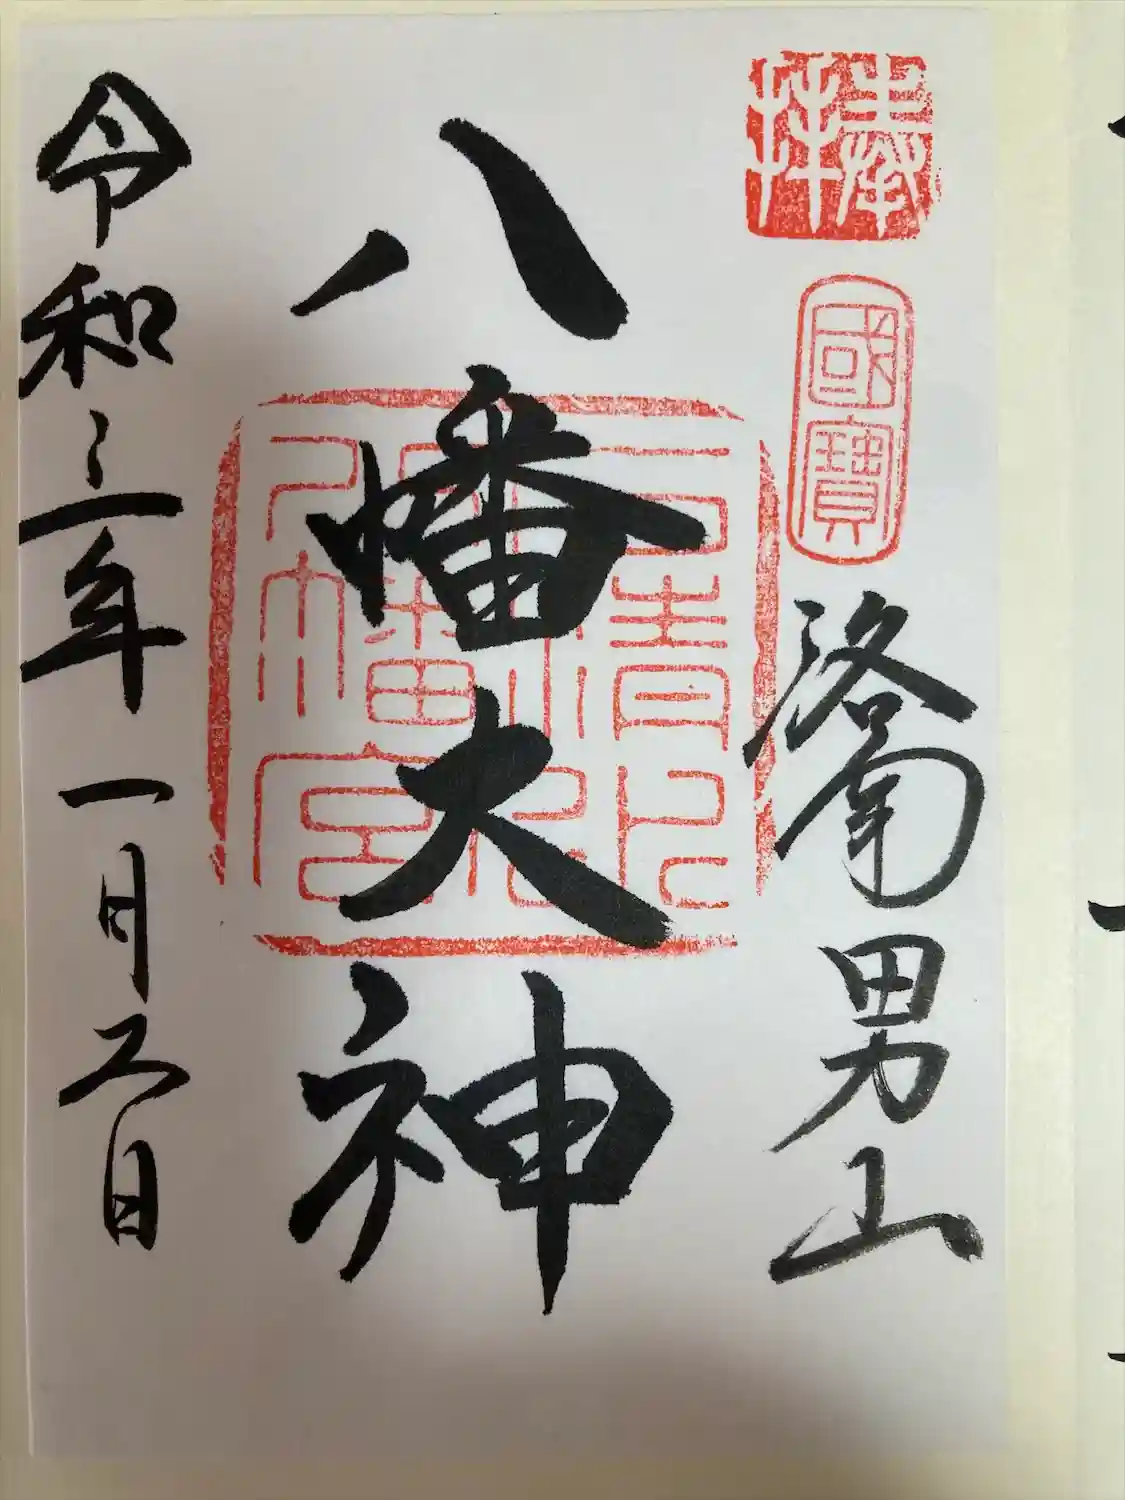 奉拝
國寶
洛南男山
石清水八幡宮
八幡大神
令和三年一月二日